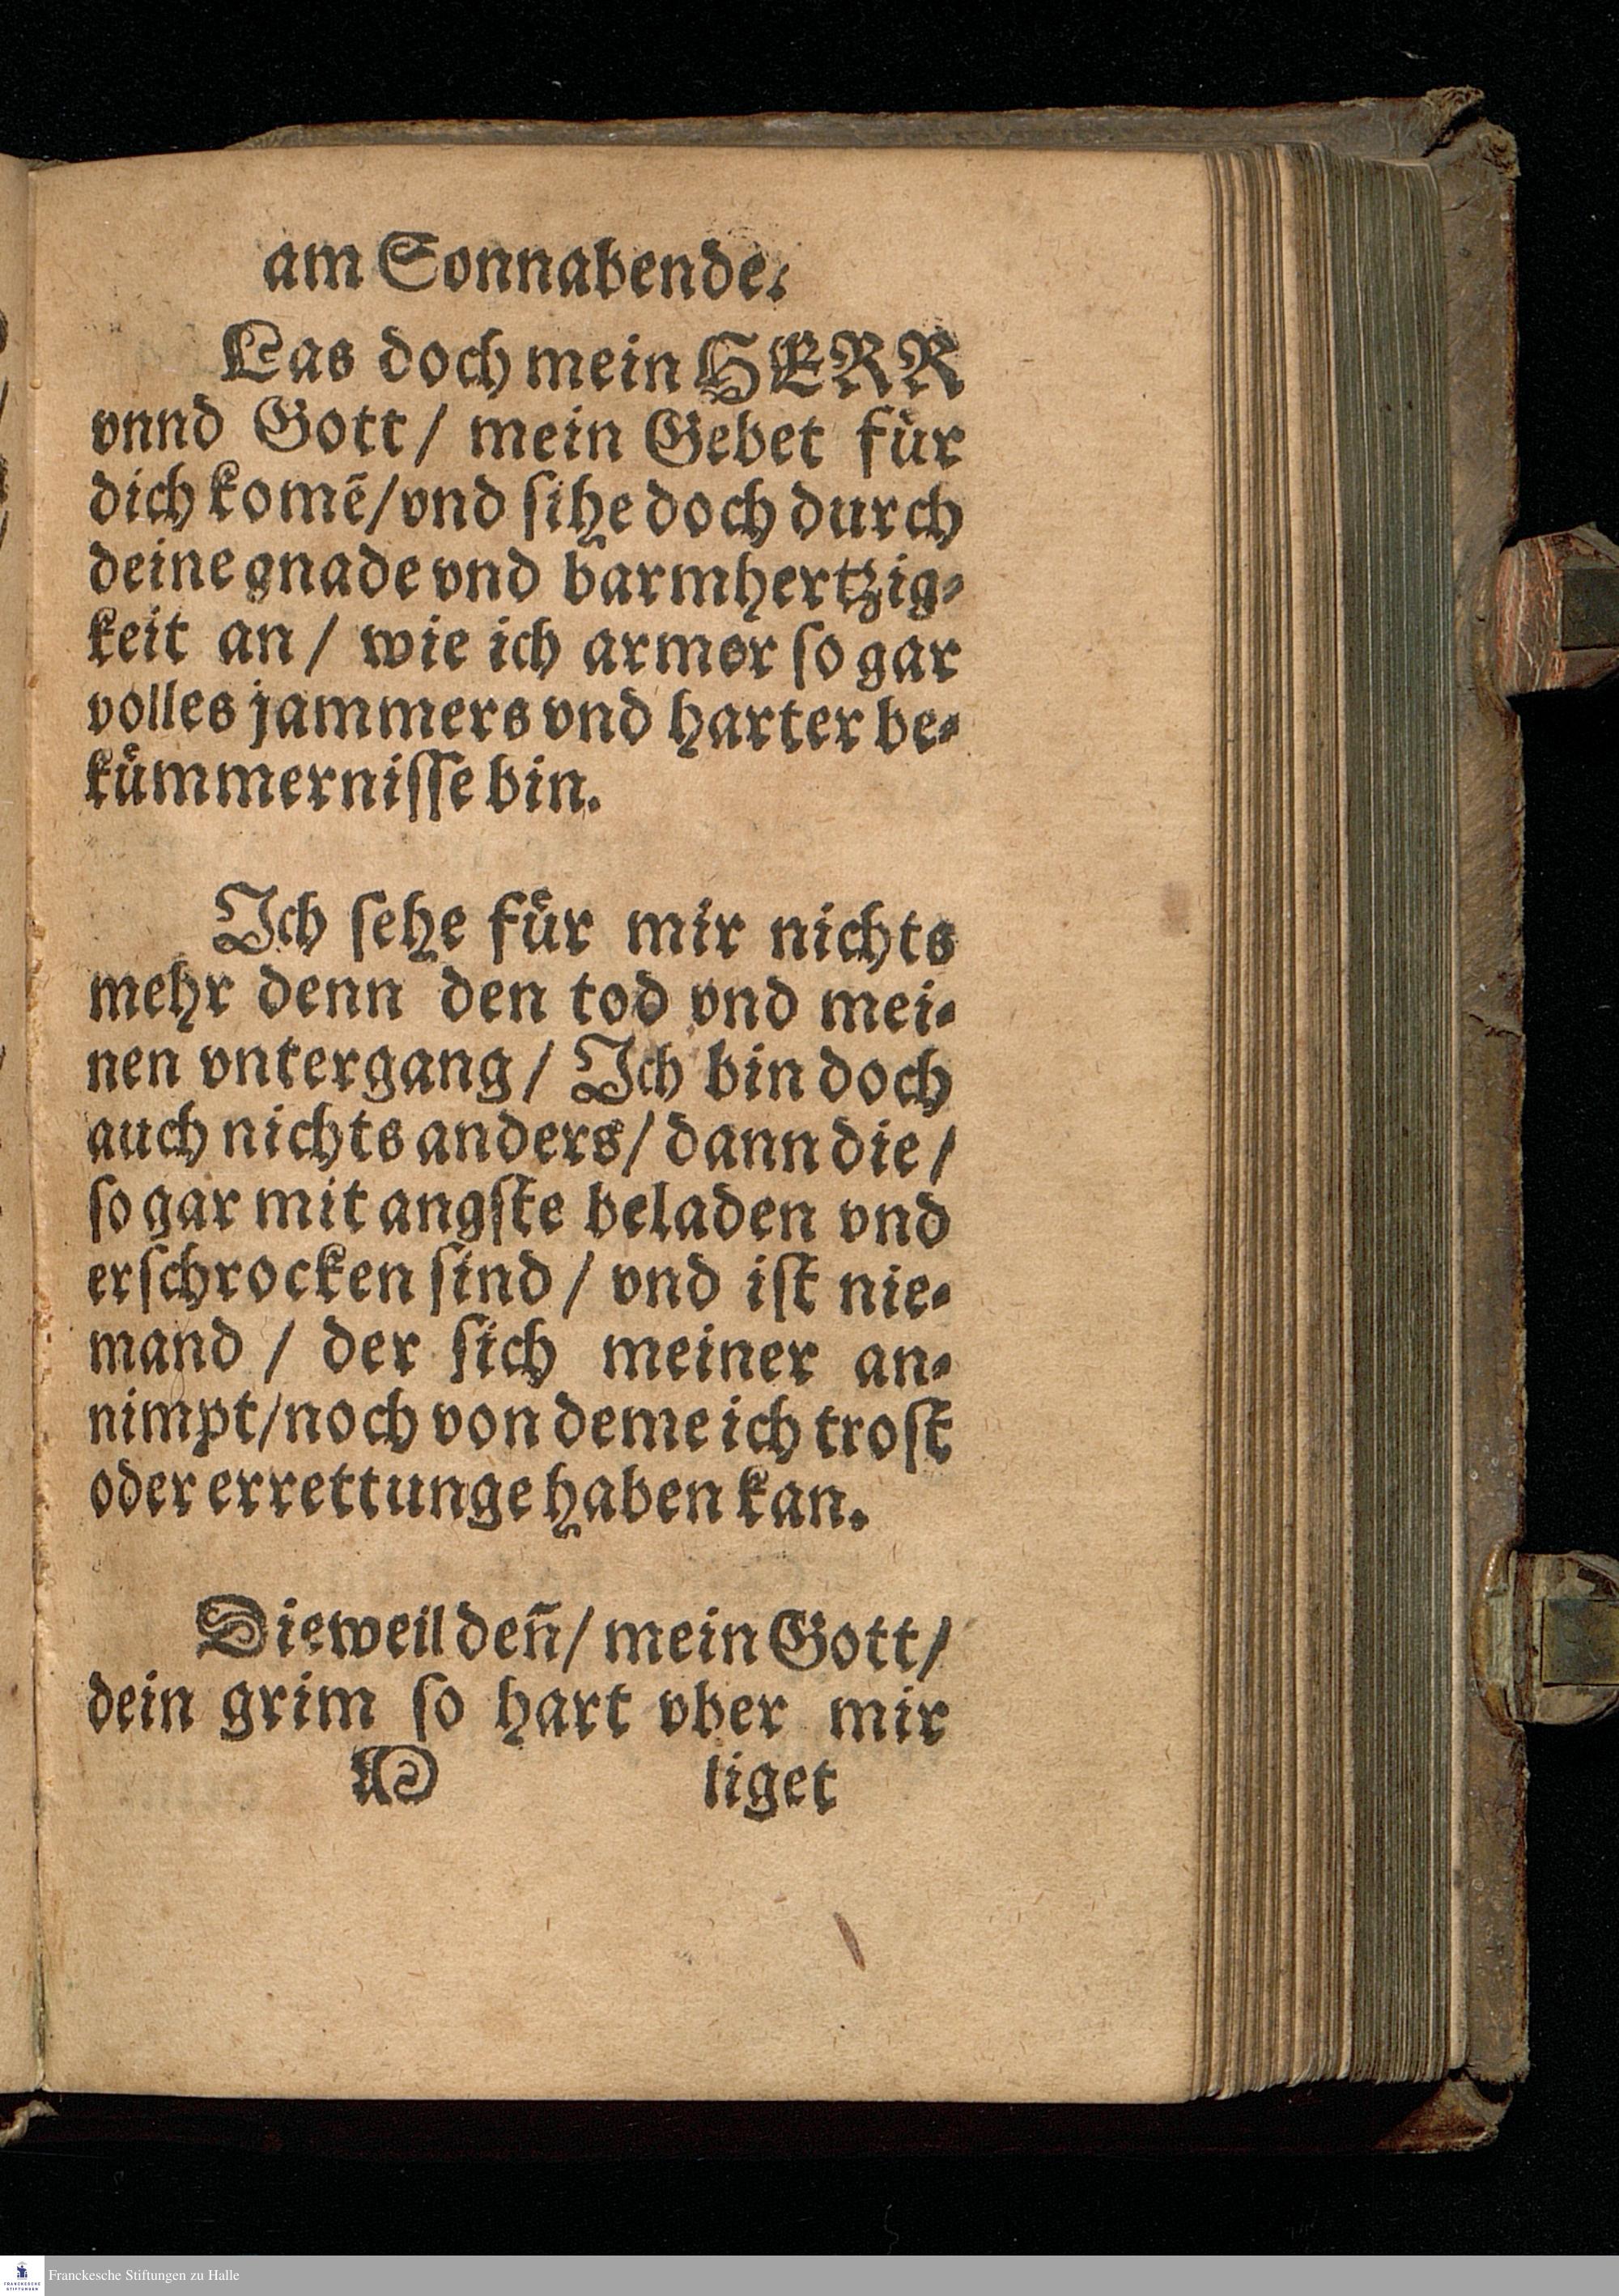 am Sonnabende.
Las doch mein HERR
vnnd Gott / mein Gebet fuͤr
dich komē / vnd sihe doch durch
deine gnade vnd barmhertzig-
keit an / wie ich armer so gar
volles jammers vnd harter be-
kuͤmmernisse bin.
Ich sehe fuͤr mir nichts
mehr denn den tod vnd mei-
nen vntergang / Ich bin doch
auch nichts anders / dann die /
so gar mit angste beladen vnd
erschrocken sind / vnd ist nie-
mand / der sich meiner an-
nimpt / noch von deme ich trost
oder errettunge haben kan.
Dieweil deñ / mein Gott /
dein grim so hart vber mir
liget
Franckesche Stiftungen zu Halle
FRANCKESCHE
STIFTUNGEN